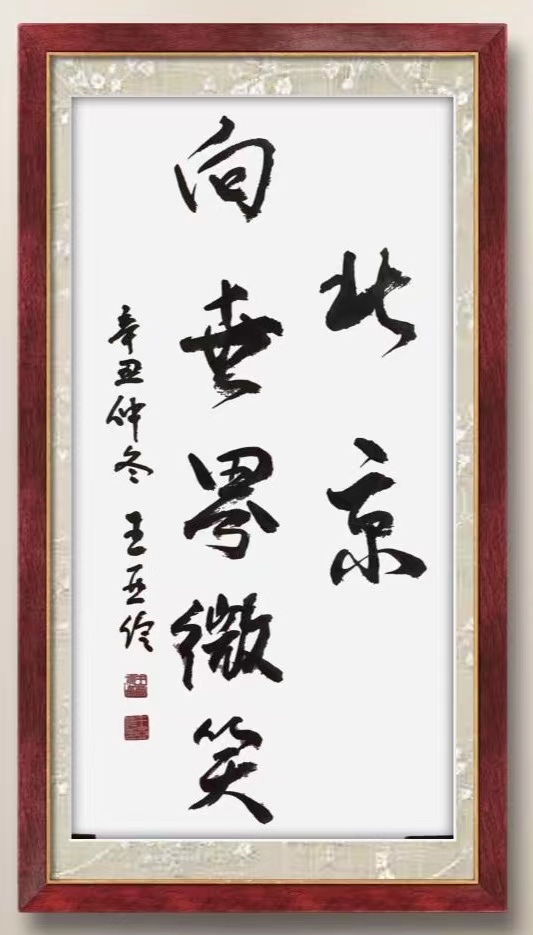 北京
向世界微笑
辛丑仲冬 王亚伶